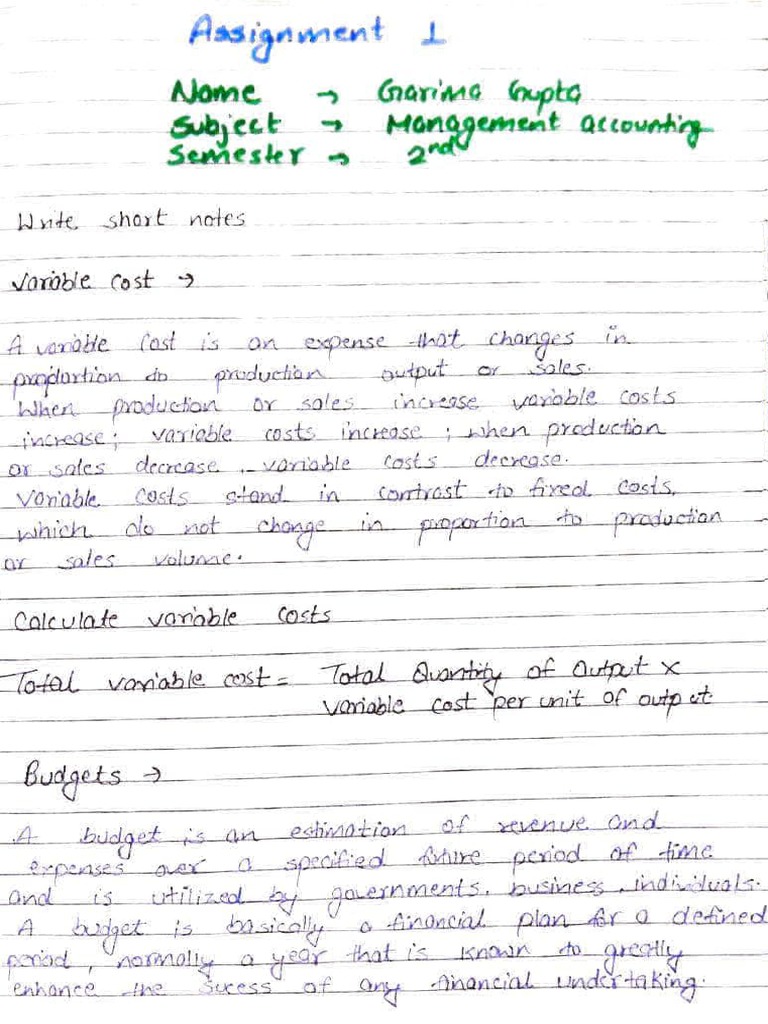 Assignment 1
Name → Garima Gupta
Subject → Management accounting
Semester → 2nd
Write short notes
Variable cost →
A variable Cost is an expense that changes in
proportion to production output or sales.
When production or sales increase variable costs
increase; variable costs increase; when production
or sales decrease, variable costs decrease.
Variable costs stand in contrast to fixed costs,
which do not change in proportion to production
or sales volume.
Calculate variable costs
Total variable cost = Total Quantity of Output ×
variable cost per unit of output
Budgets →
A budget is an estimation of revenue and
expenses over a specified future period of time
and is utilized by governments, business, individuals.
A budget is basically a financial plan for a defined
period, normally a year that is known to greatly
enhance the sucess of any financial undertaking.